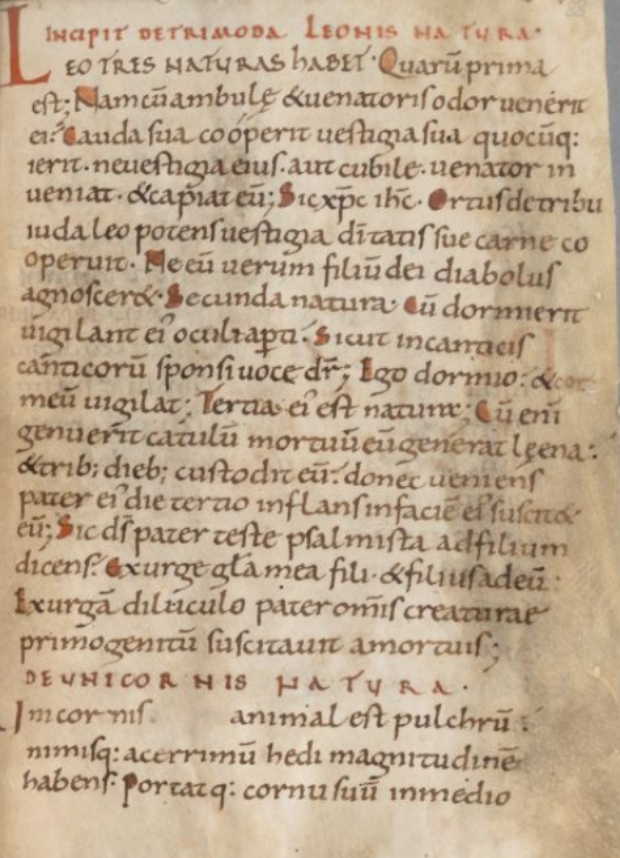 INCIPIT DE TRIMODA LEONIS NATURA·
LEO TRES NATURAS hABET· Quarū prima
est; Nam cū ambulę &uenatoris odor uenerit
ei·Cauda sua cooperit uestigia sua quocūq:
ierit· ne uestigia eius· aut cubile· uenator in
ueniat· & capiat eū; Sic xp̄c ih̄c· Ortus de tribu
iuda leo potens uestigia diītatis sue carne co
operuit· Ne eū uerum filiū dei diabolus
agnoscer&· Secunda natura· Cū dormierit
uigilant ei' oculi apti· Sicut in canticis
canticorū sponsi uoce dr̄; Ego dormio: & cor
meū uigilat; Tertia ei' est natura; Cū eni
genuerit catulū mortuū eū generat leena:
& trib; dieb; custodit eū: donec ueniens
pater ei' die tertio inflans in faciē ei' suscita&
eū; Sic ds̄ pater teste psalmista ad filium
dicens: Exurge gl̄a mea fili· & filius ad eū:
Exurgā diluculo pater om̄is creaturae
primogenitū suscitauit a mortuis;
DE UNICORNIS NATURA·
Inicornis animal est pulchrū:
nimisq: acerrimū hedi magnitudinē
habens· Portatq: cornu suū in medio